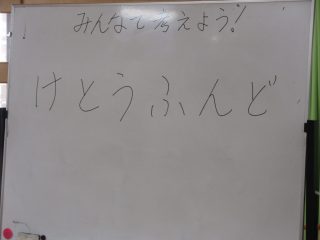 みんなで考えよう!
けとうふんど